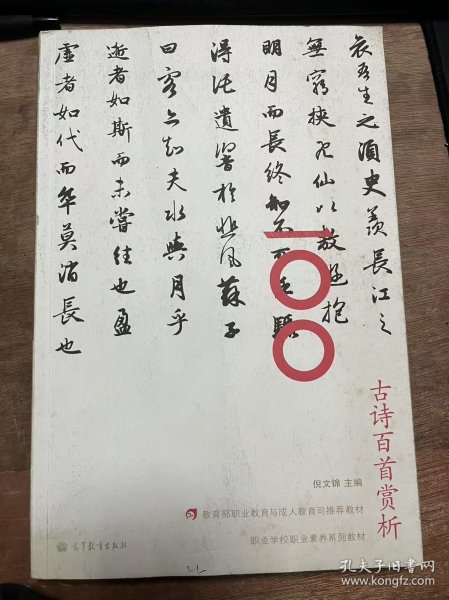 哀吾生之須臾羨長江之
無窮挾飛仙以遨遊抱
明月而長終知不可乎驟
得託遺響於悲風蘇子
曰客亦知夫水與月乎
逝者如斯而未嘗往也盈
虛者如代而卒莫消長也
100
古诗百首赏析
倪文锦 主编
教育部职业教育与成人教育司推荐教材
职业学校职业素养系列教材
高等教育出版社
孔夫子旧书网
www.kongfz.com